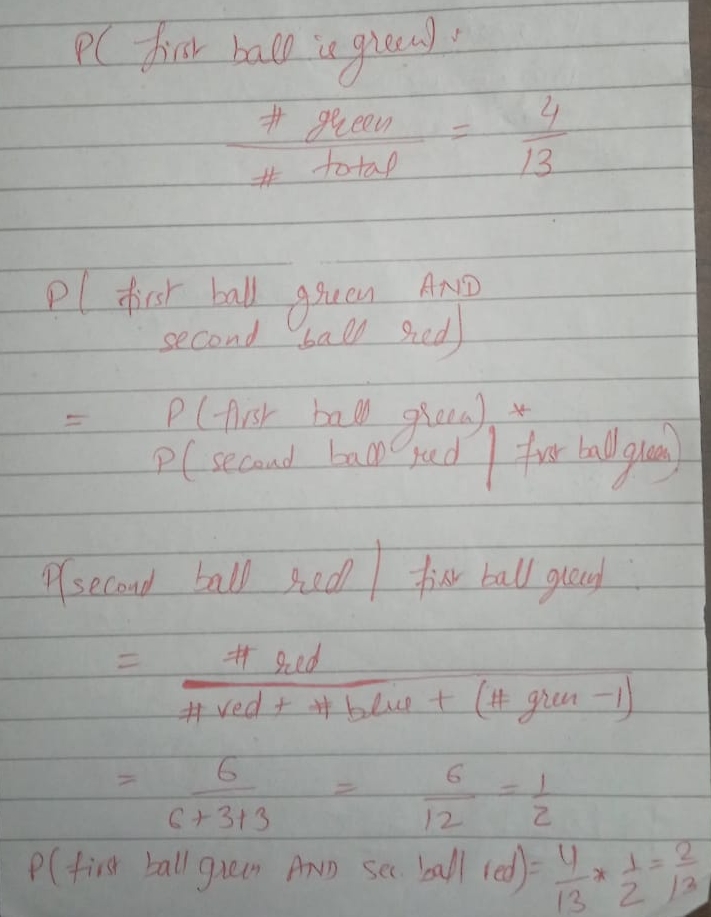 P( first ball is green) :
# green / # total = 4/13
P( first ball green AND
second ball red)
= P(first ball green) *
P( second ball red | first ball green)
P(second ball red | first ball green) :
= # red / # red + # blue + (# gren -1)
= 6/6+3+3 = 6/12 = 1/2
P(first ball green AND sec. ball red) = 4/13 * 1/2 = 2/13